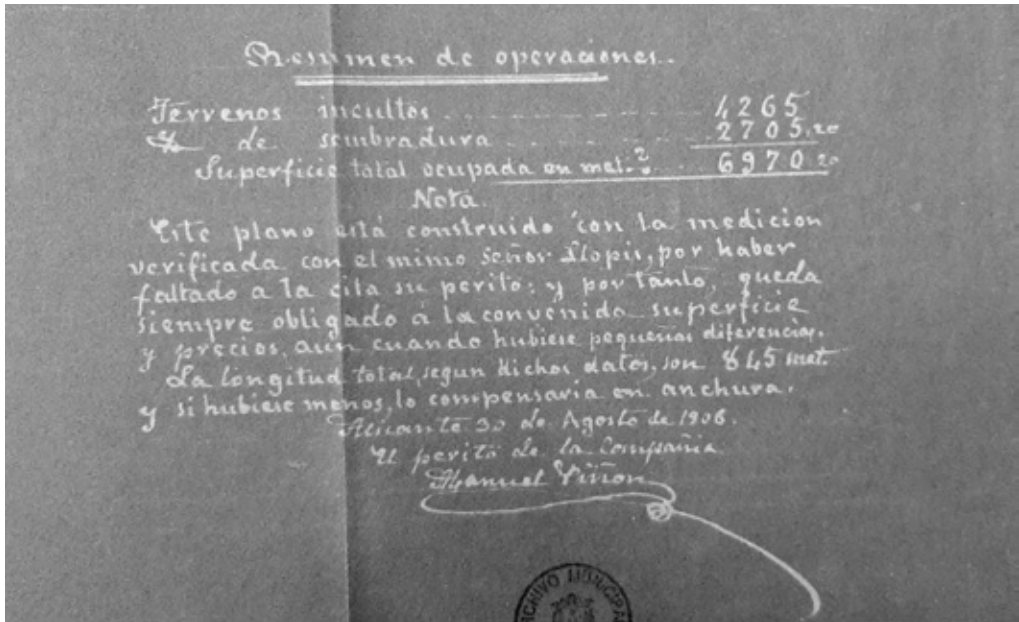 Resumen de operaciones.
Terrenos incultos . . . . . . . . 4265
de sembradura . . . . . . . 2705,20
Superficie total ocupada en met.² . . 6970 20
Nota.
Este plano está construido con la medicion
verificada con el mimo señor Llopis, por haber
faltado a la cita su perito; y por tanto, queda
siempre obligado á la convenida superficie
y precios, aun cuando hubiese pequeñas diferencias.
La longitud total, segun dichos datos, son 845 met.
y si hubiese menos, lo compensaria en anchura.
Alicante 30 de Agosto de 1906.
El perito de la Compañia
Manuel Viñon
ARCHIVO MUNICIPAL